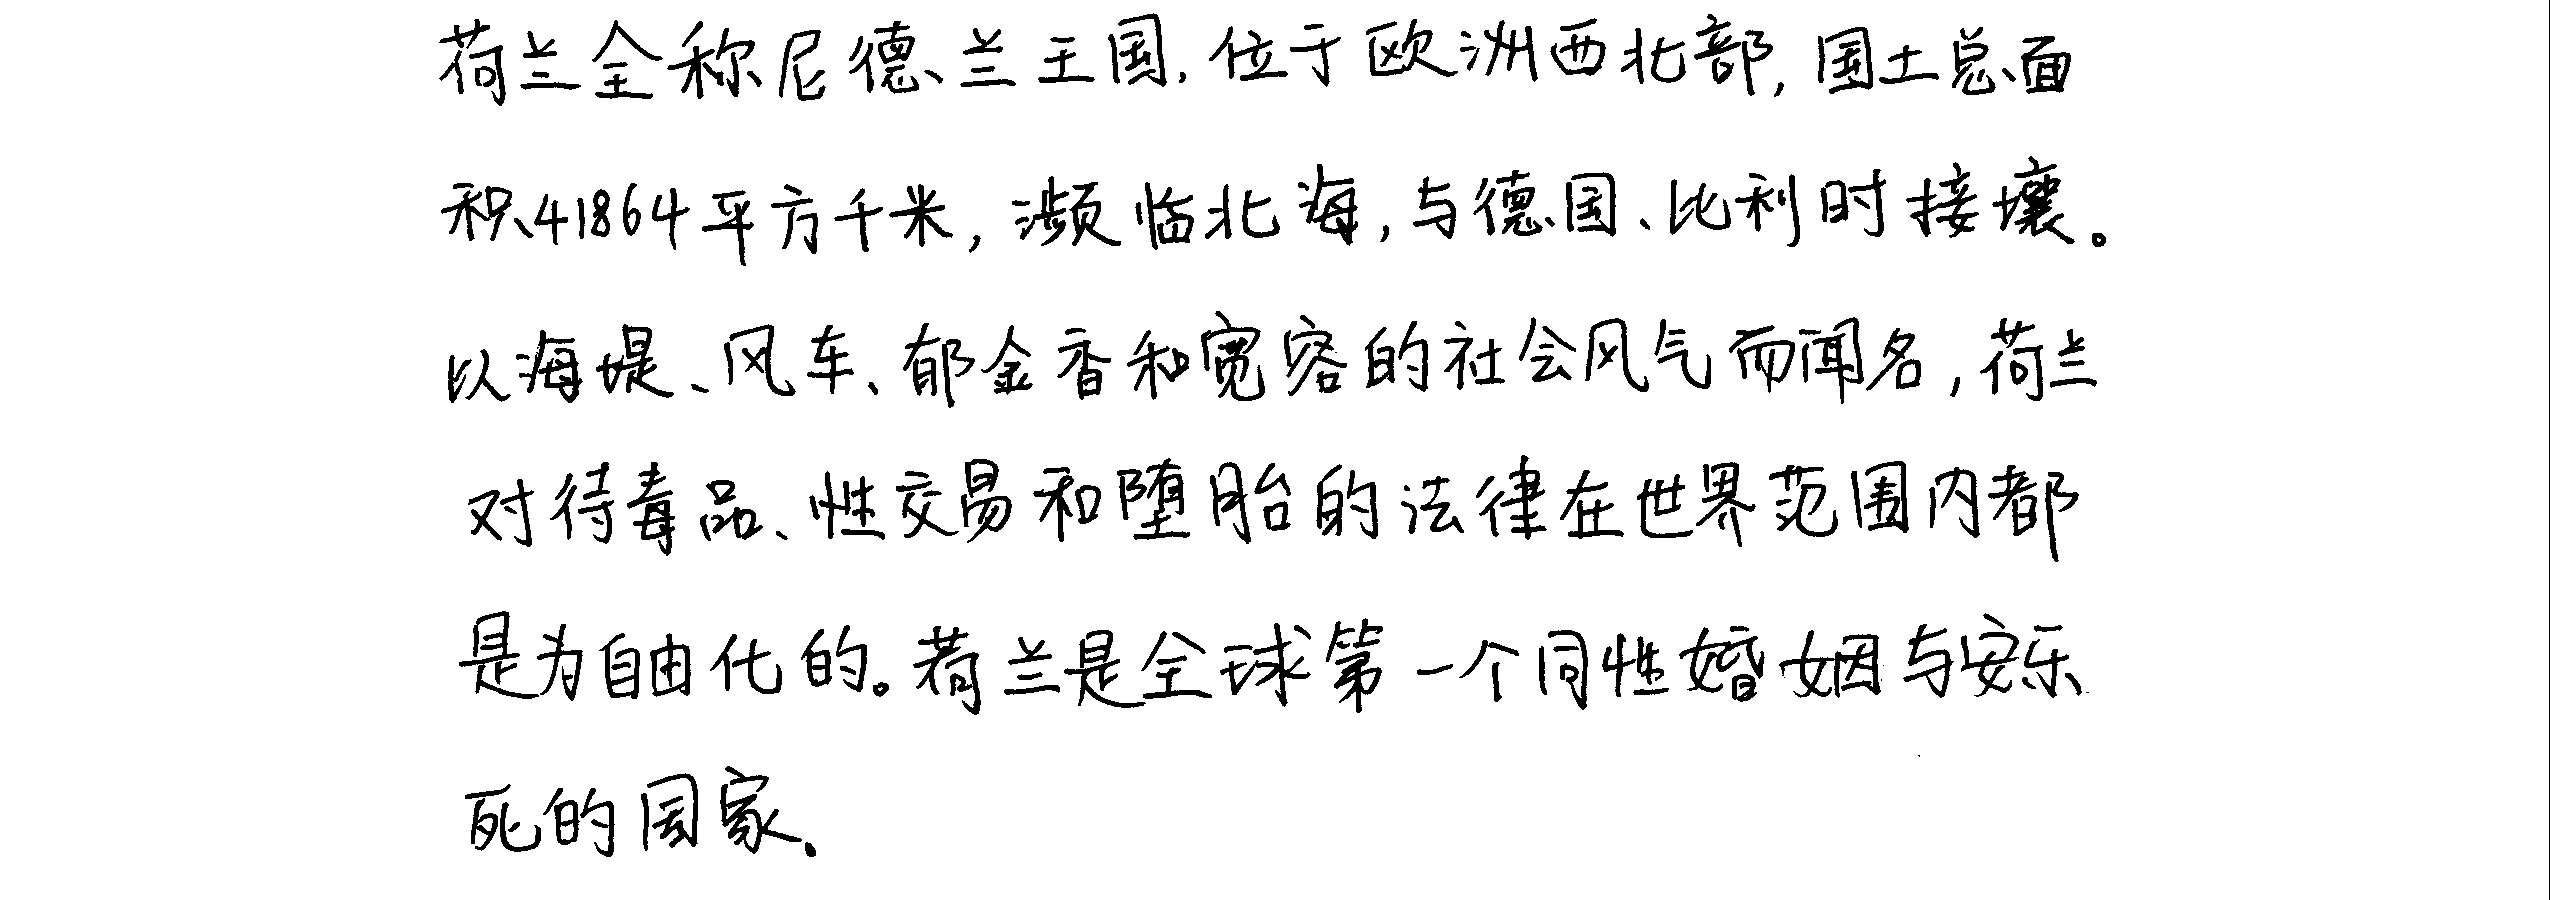 荷兰全称尼德兰王国,位于欧洲西北部,国土总面
积41864平方千米,濒临北海,与德国、比利时接壤。
以海堤、风车、郁金香和宽容的社会风气而闻名,荷兰
对待毒品、性交易和堕胎的法律在世界范围内都
是为自由化的。荷兰是全球第一个同性婚姻与安乐
死的国家.